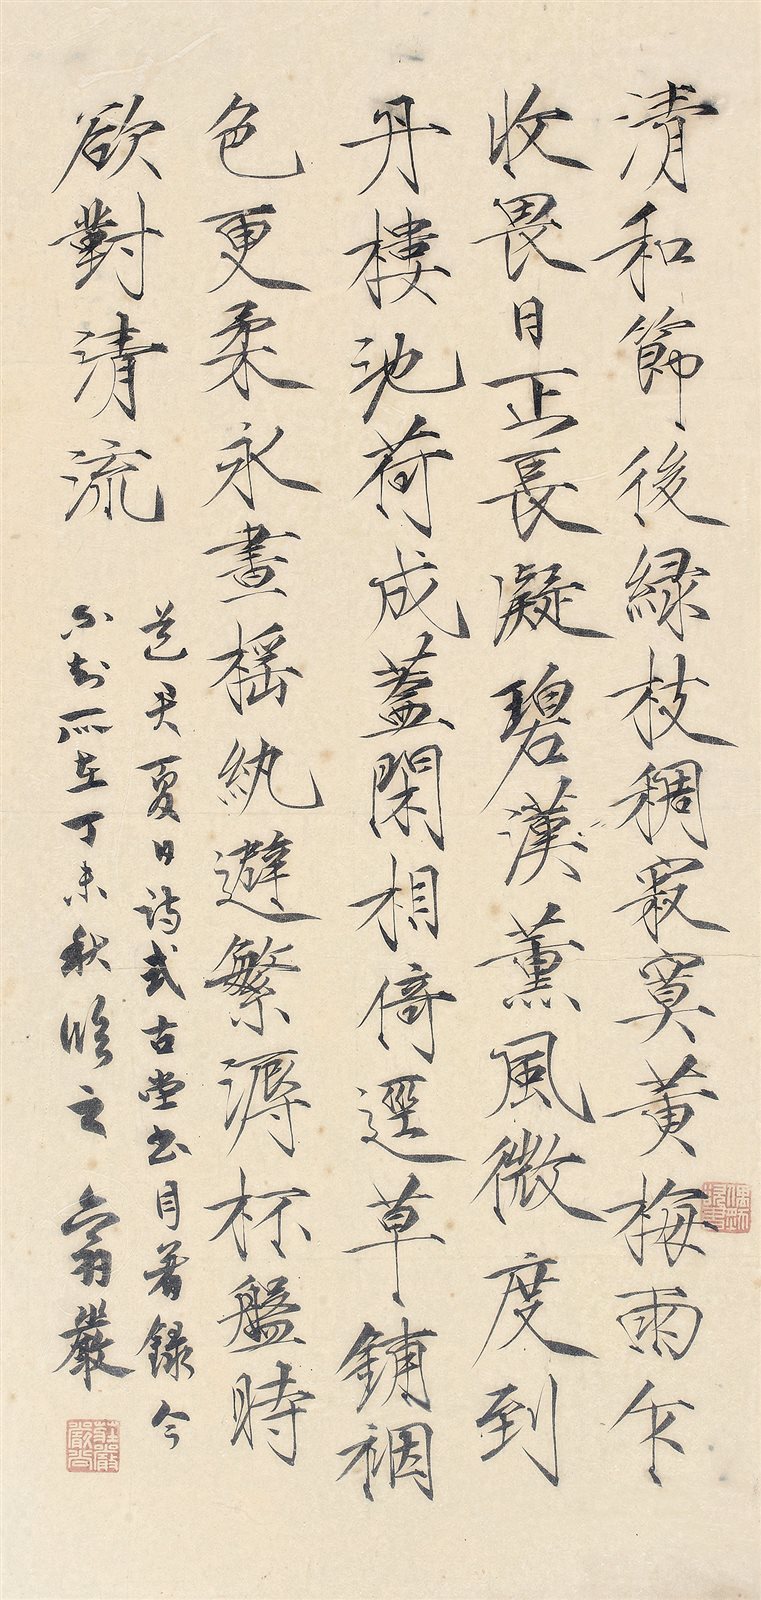 清和節後綠枝稠寂寞黃梅雨乍
收畏日正長凝碧漢薰風微度到
丹樓池荷成蓋閑相倚逕草鋪裀
色更柔永晝搖紈避繁溽杯盤時
欲對清流
道君夏日詩式古堂書目著錄今
不知所在丁未秋臨之 六翁嚴